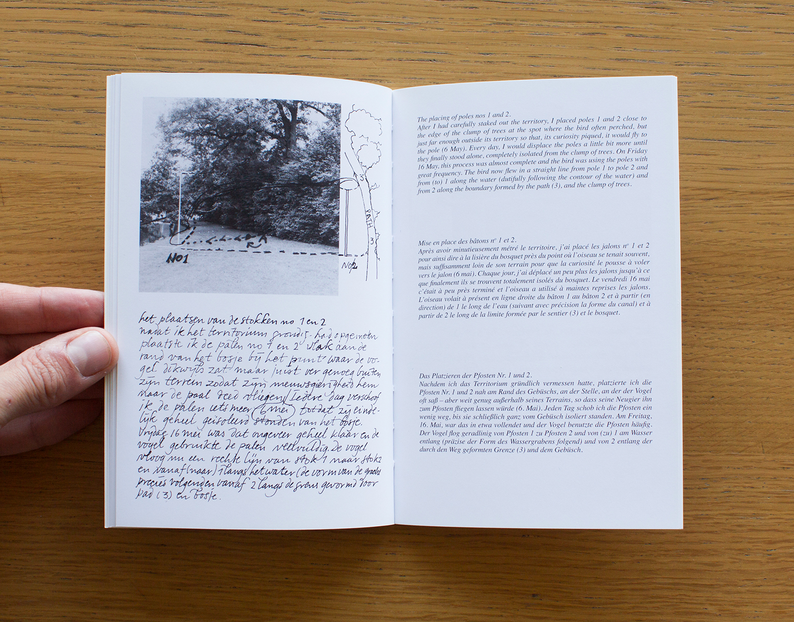 NO1
No2
het plaatsen van de stokken no 1 en 2
nadat ik het territorium grondig had opgemeten
plaatste ik de palen no 1 en 2 vlak aan de
rand van het bosje bij het punt waar de vo-
gel dikwijls zat maar juist ver genoeg buiten
zijn terrein zodat zijn nieuwsgierigheid hem
naar de paal deed vliegen iedere dag verschof
ik de palen iets meer (mei) totdat zij einde-
lijk geheel geisoleerd stonden van het bosje.
Vrijdag 16 mei was dat ongeveer geheel klaar en de
vogel gebruikte de palen veelvuldig. de vogel
vloog nu een rechte lijn van stok 1 naar stok 2
en vanaf (naar) 1 langs het water (de vorm van de
precies volgend en vanaf 2 langs de grens gevormd door
pad (3) en bosje.
The placing of poles nos 1 and 2.
After I had carefully staked out the territory, I placed poles 1 and 2 close to
the edge of the clump of trees at the spot where the bird often perched, but
just far enough outside its territory so that, its curiosity piqued, it would fly to
the pole (6 May). Every day, I would displace the poles a little bit more until
they finally stood alone, completely isolated from the clump of trees. On Friday
16 May, this process was almost complete and the bird was using the poles with
great frequency. The bird now flew in a straight line from pole 1 to pole 2 and
from (to) 1 along the water (dutifully following the contour of the water) and
from 2 along the boundary formed by the path (3), and the clump of trees.
Mise en place des bâtons nº 1 et 2.
Après avoir minutieusement métré le territoire, j'ai placé les jalons nº 1 et 2
pour ainsi dire à la lisière du bosquet près du point où l'oiseau se tenait souvent,
mais suffisamment loin de son terrain pour que la curiosité le pousse à voler
vers le jalon (6 mai). Chaque jour, j'ai déplacé un peu plus les jalons jusqu'à ce
que finalement ils se trouvent totalement isolés du bosquet. Le vendredi 16 mai
c'était à peu près terminé et l'oiseau a utilisé à maintes reprises les jalons.
L'oiseau volait à présent en ligne droite du bâton 1 au bâton 2 et à partir (en
direction) de 1 le long de l'eau (suivant avec précision la forme du canal) et à
partir de 2 le long de la limite formée par le sentier (3) et le bosquet.
Das Platzieren der Pfosten Nr. 1 und 2.
Nachdem ich das Territorium gründlich vermessen hatte, platzierte ich die
Pfosten Nr. 1 und 2 nah am Rand des Gebüschs, an der Stelle, an der der Vogel
oft saß – aber weit genug außerhalb seines Terrains, so dass seine Neugier ihn
zum Pfosten fliegen lassen würde (6. Mai). Jeden Tag schob ich die Pfosten ein
wenig weg, bis sie schließlich ganz vom Gebüsch isoliert standen. Am Freitag,
16. Mai, war das in etwa vollendet und der Vogel benutzte die Pfosten häufig.
Der Vogel flog geradlinig von Pfosten 1 zu Pfosten 2 und von (zu) 1 am Wasser
entlang (präzise der Form des Wassergrabens folgend) und von 2 entlang der
durch den Weg geformten Grenze (3) und dem Gebüsch.